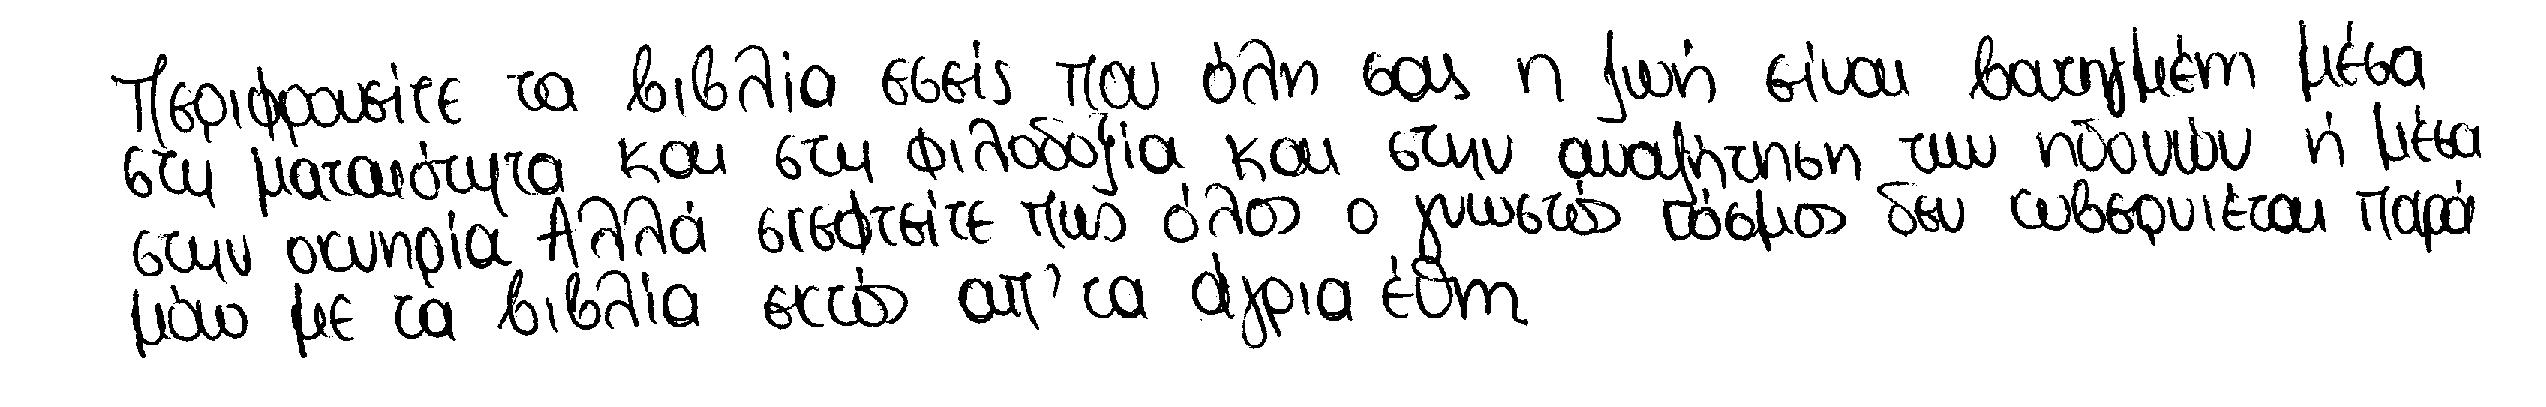 Περιφρονείτε τα βιβλία εσείς που όλη σας η ζωή είναι βουτηγμένη μέσα
στη ματαιότητα και στη φιλοδοξία και στην αναζήτηση των ηδονών ή μέσα
στην οκνηρία Αλλά σκεφτείτε πως όλος ο γνωστός κόσμος δεν κυβερνιέται παρά
μόνο με τα βιβλία εκτός απ' τα άγρια έθνη